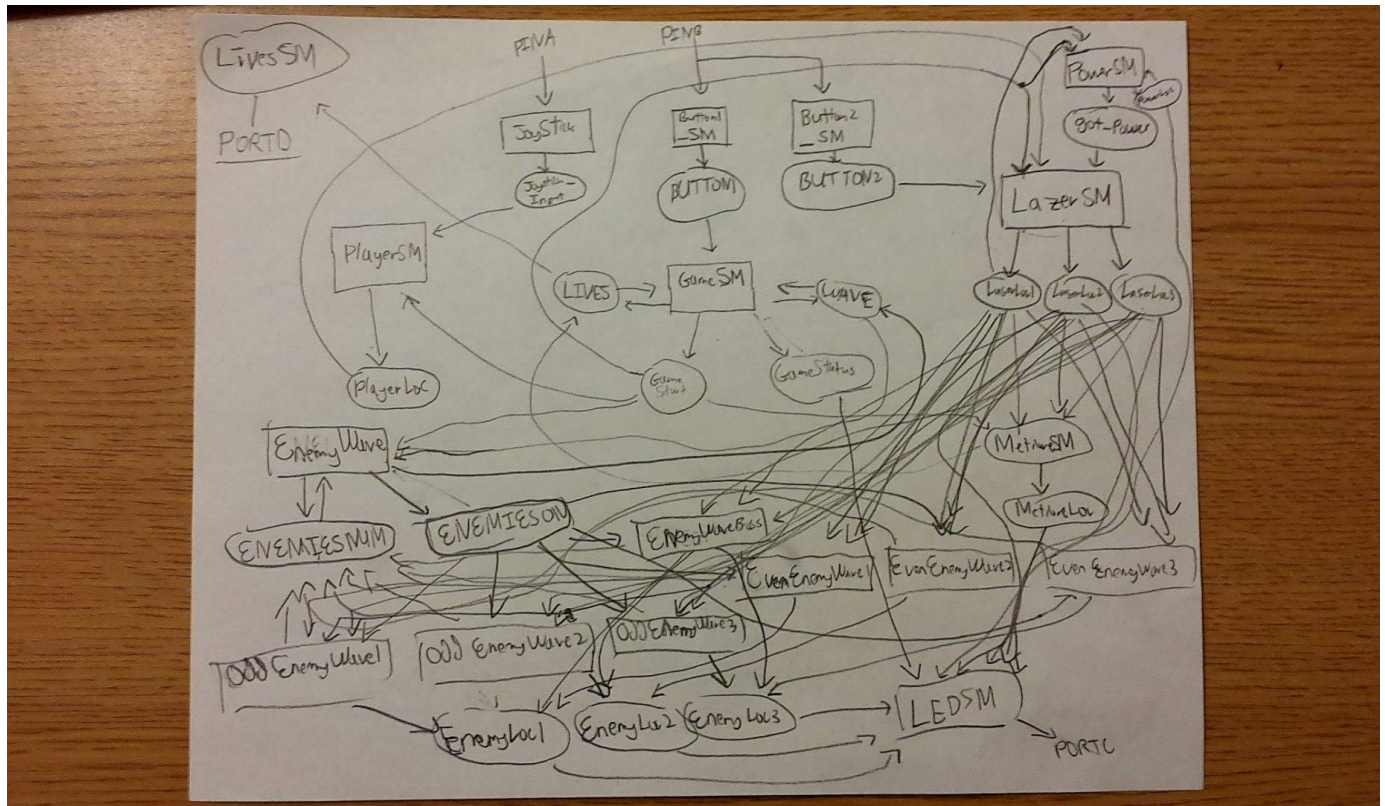 LivesSM
PORTD
PINA
PINB
PowerSM
JoyStick
Button1
_SM
Button2
_SM
got_Power
Joystick_
Input
BUTTON1
BUTTON2
LazerSM
PlayerSM
LIVES
GameSM
WAVE
LaserLoc1
LaserLoc2
LaserLoc3
PlayerLoc
Game
Start
GameStatus
EnemyWave
ENEMIESNUM
ENEMIESON
EnemyWaveBoss
EvenEnemyWave1
EvenEnemyWave2
Even EnemyWave3
Odd EnemyWave1
Odd EnemyWave2
Odd EnemyWave3
EnemyLoc1
EnemyLoc2
EnemyLoc3
LEDSM
PORTC